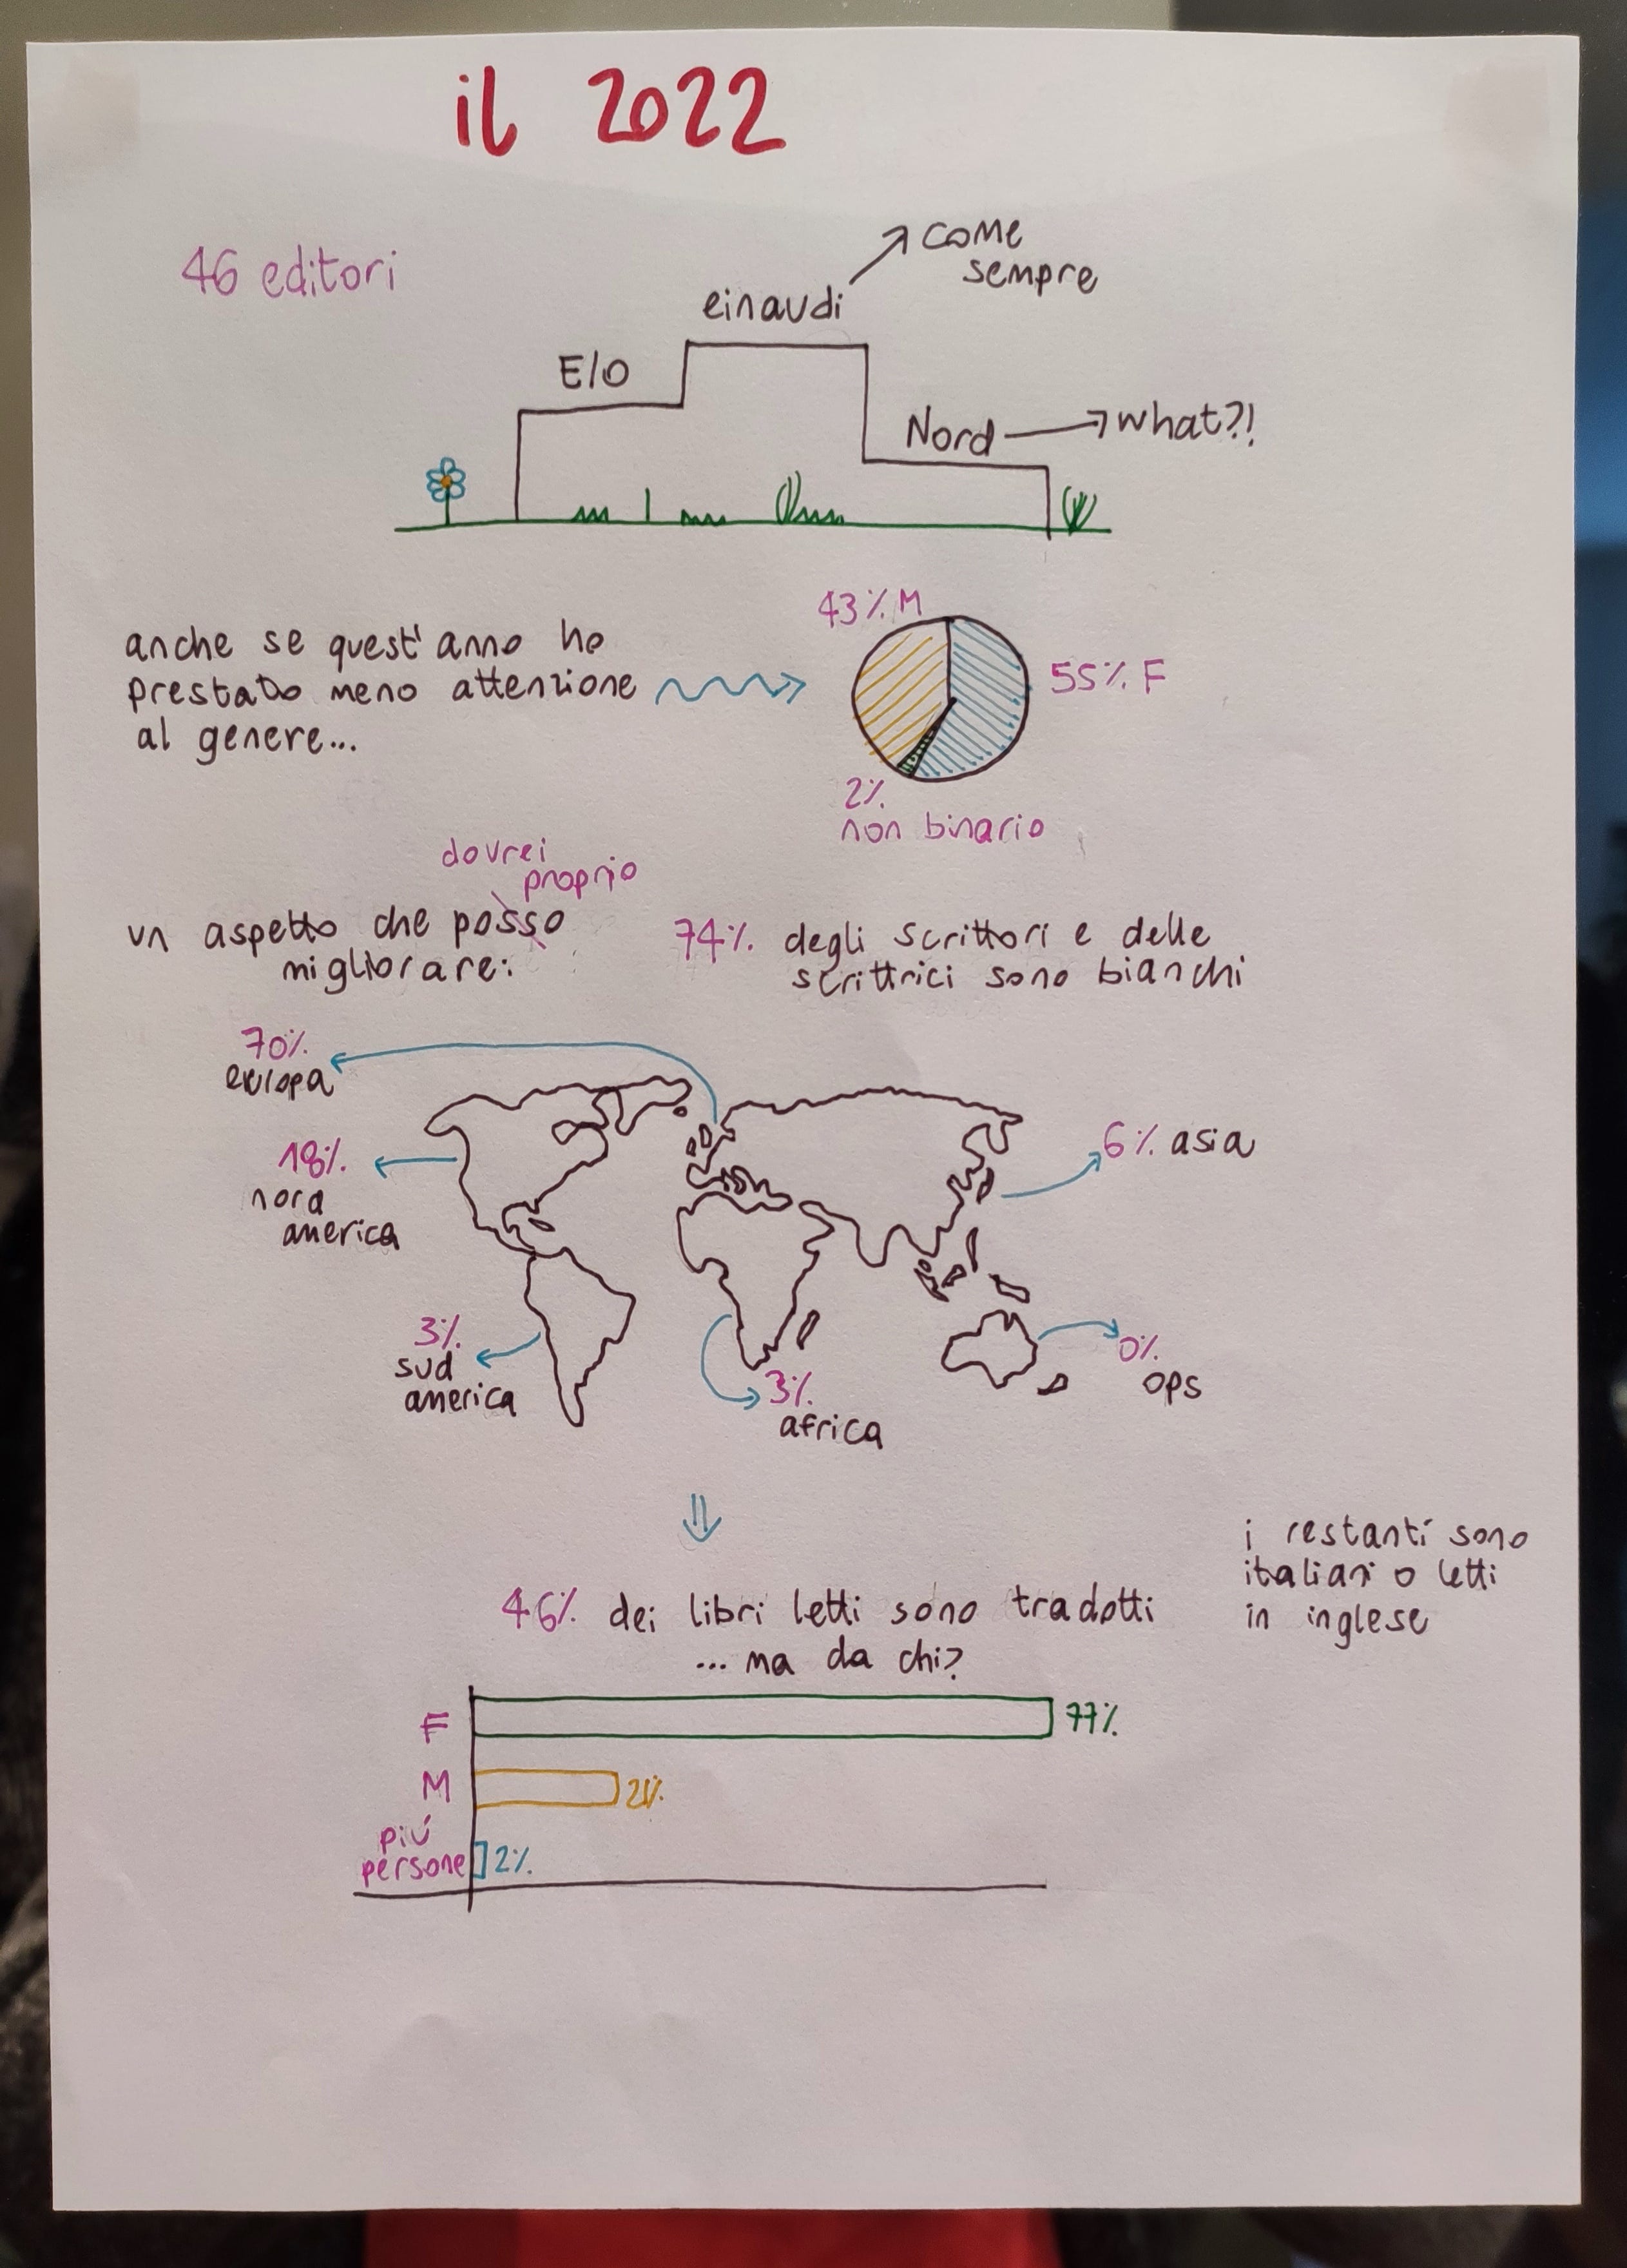 il 2022
46 editori
come
sempre
einaudi
E/O
Nord
what?!
anche se quest'anno ho
prestato meno attenzione
al genere...
43% M
55% F
2%
non binario
dovrei
proprio
un aspetto che posso
migliorare:
74% degli scrittori e delle
scrittrici sono bianchi
70%
europa
18%
nord
america
6% asia
3%
sud
america
3%
africa
0%
ops
46% dei libri letti sono tradotti
... ma da chi?
i restanti sono
italiani o letti
in inglese
F
77%
M
21%
più
persone
2%